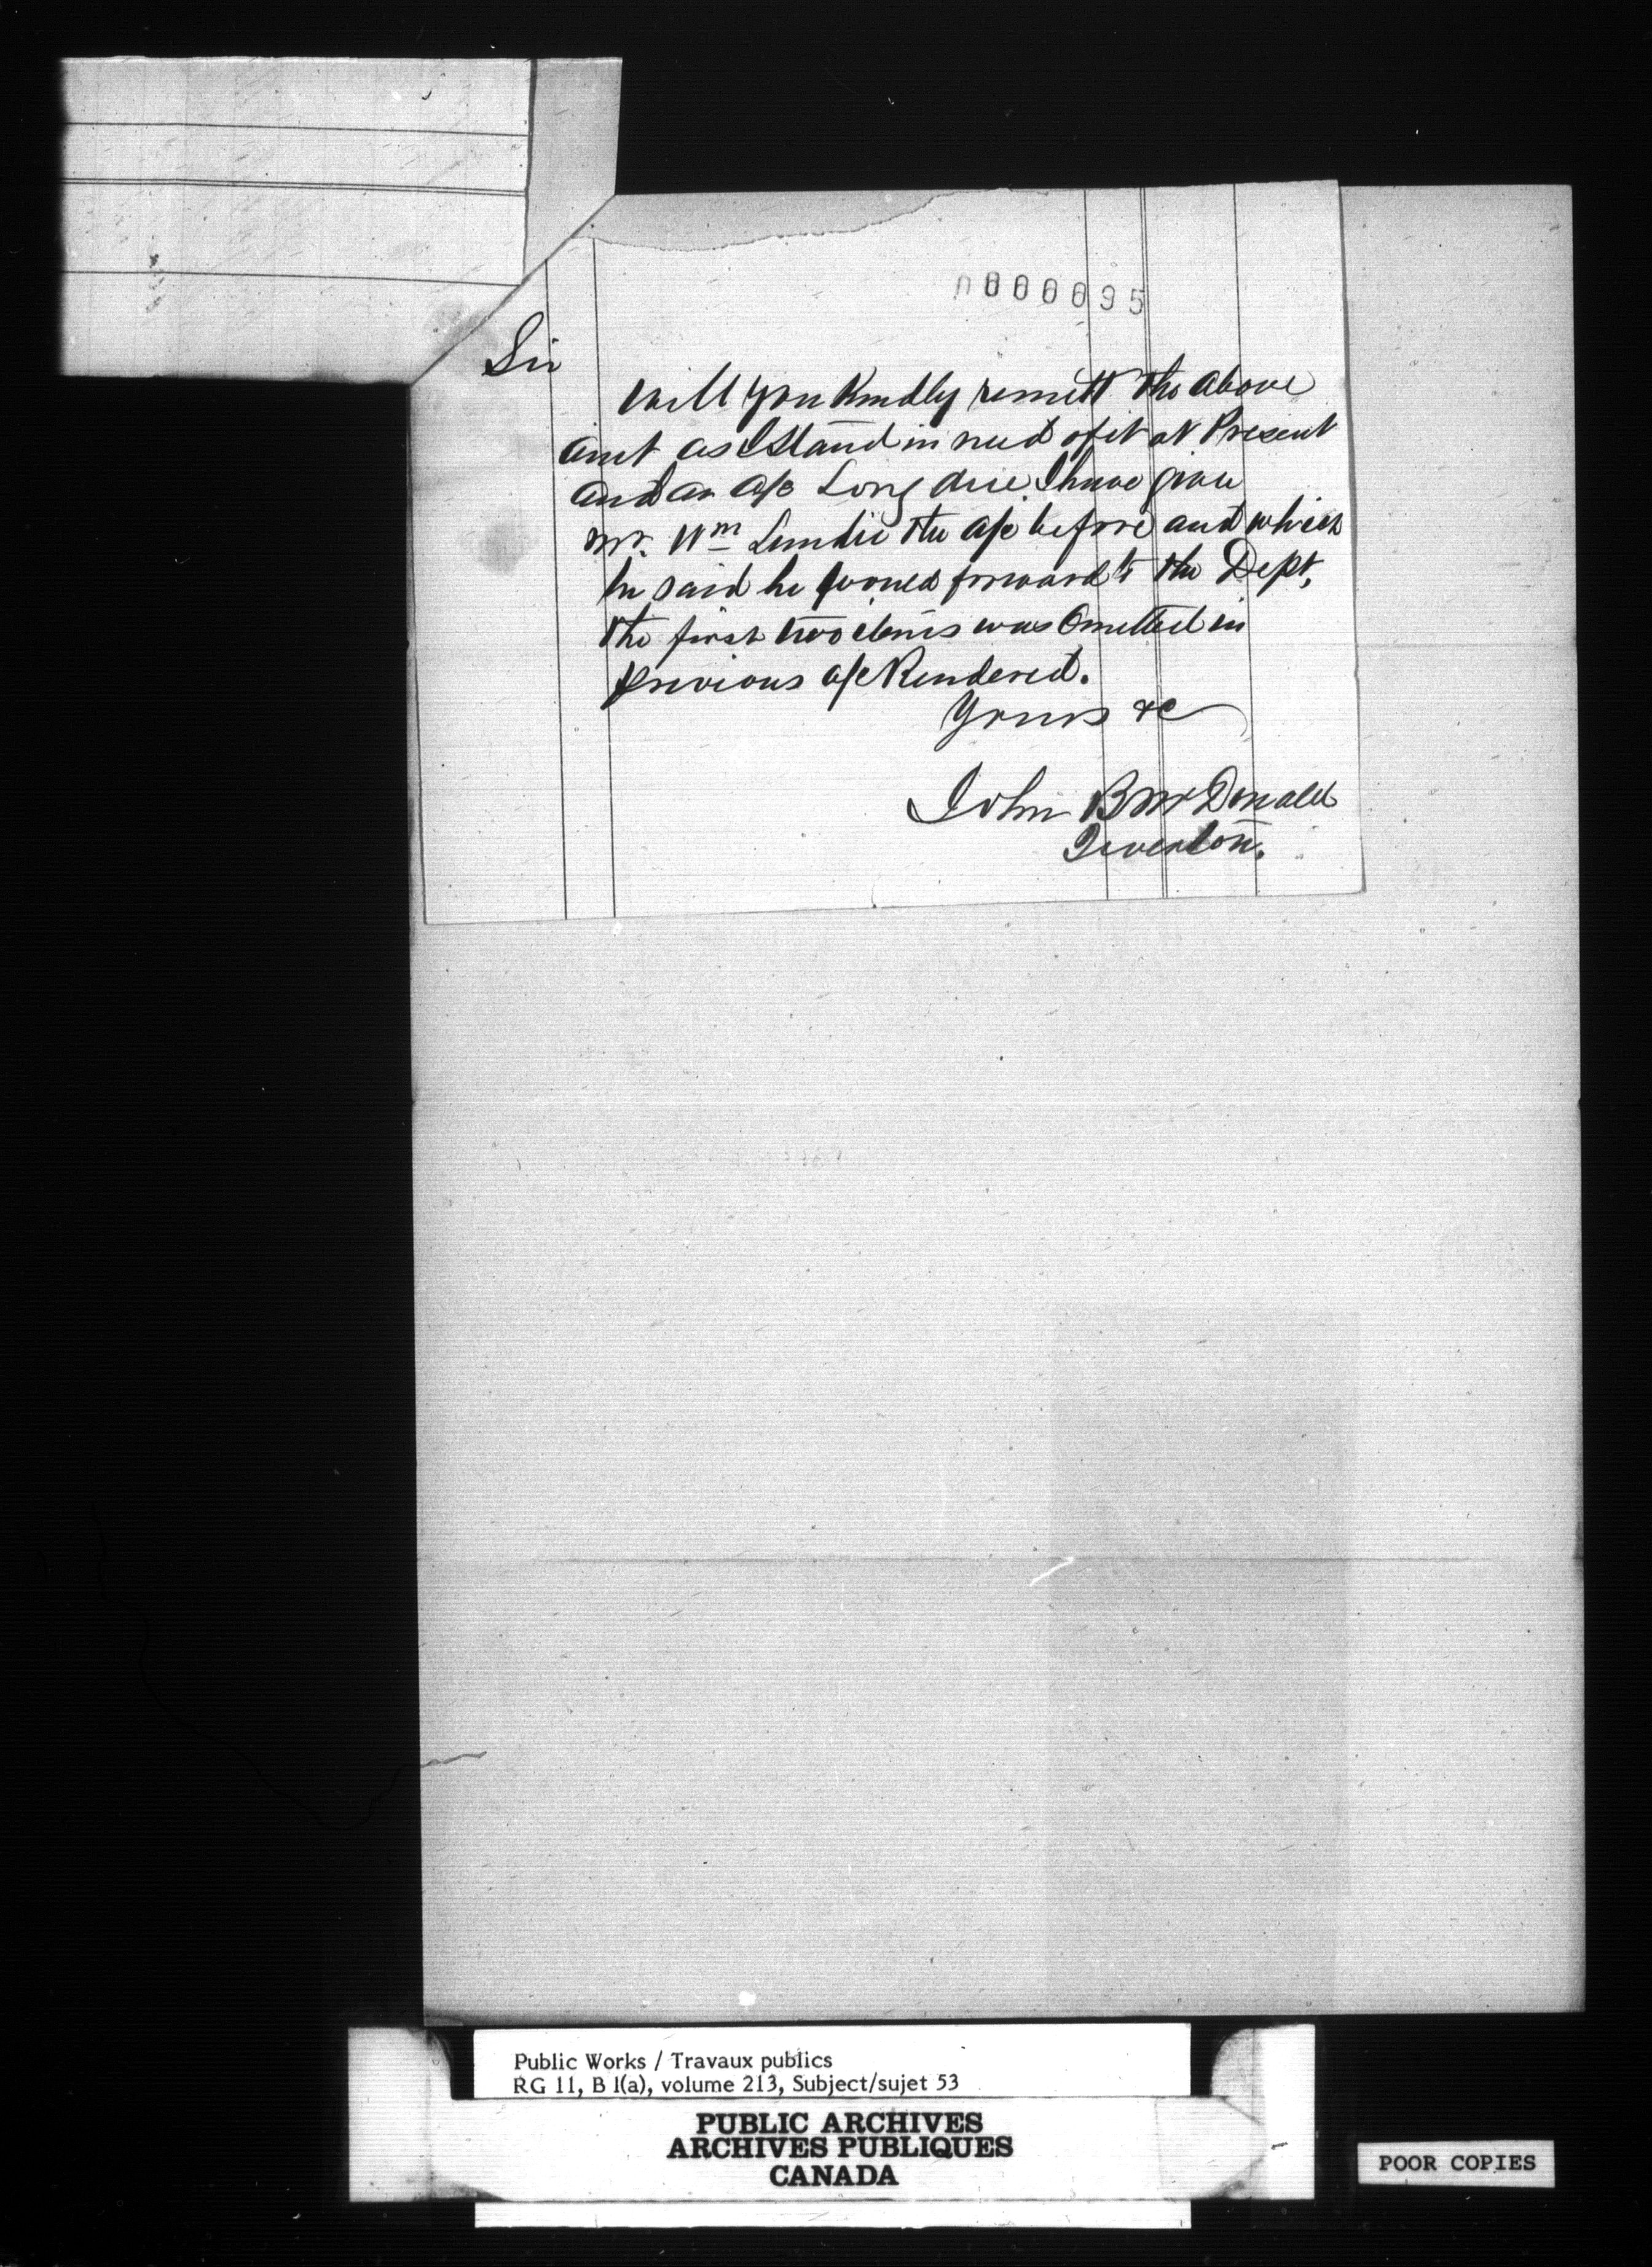 0000095
Sir
Will you Kindly remitt the above
amt as I Stand in need of it at Present
and an a/c Long due. I have given
Mr. Wm Lundie the a/c before and which
he said he would forward to the Dept,
the first two items was Omitted in
previous a/c Rendered.
Yours &c
John B McDonald
Tiverton.
Public Works / Travaux publics
RG 11, B 1(a), volume 213, Subject/sujet 53
PUBLIC ARCHIVES
ARCHIVES PUBLIQUES
CANADA
POOR COPIES